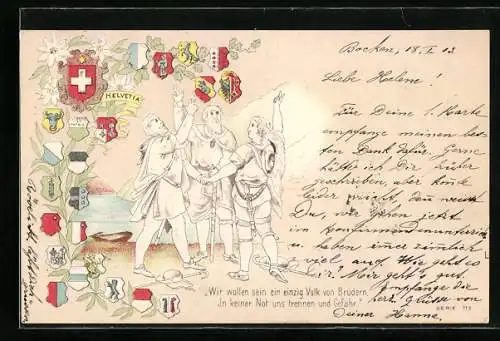 Bocken, 18. I. 03
Liebe Helene!
HELVETIA
Für Deine l. Karte
empfange meinen bes-
ten Dank dafür. Gerne
hätte ich Dir früher
geschrieben, aber konnte
leider nicht, denn weisst
Du, wir gehen jetzt
im Konfirmandenunterricht
u. haben immer ziemlich
viel auf. Wie geht es
Dir? Mir geht's gut.
Empfange die
herz. Grüsse von
Deiner Hanna.
„Wir wollen sein ein einzig Volk von Brüdern,
In keiner Not uns trennen und Gefahr."
SERIE 113